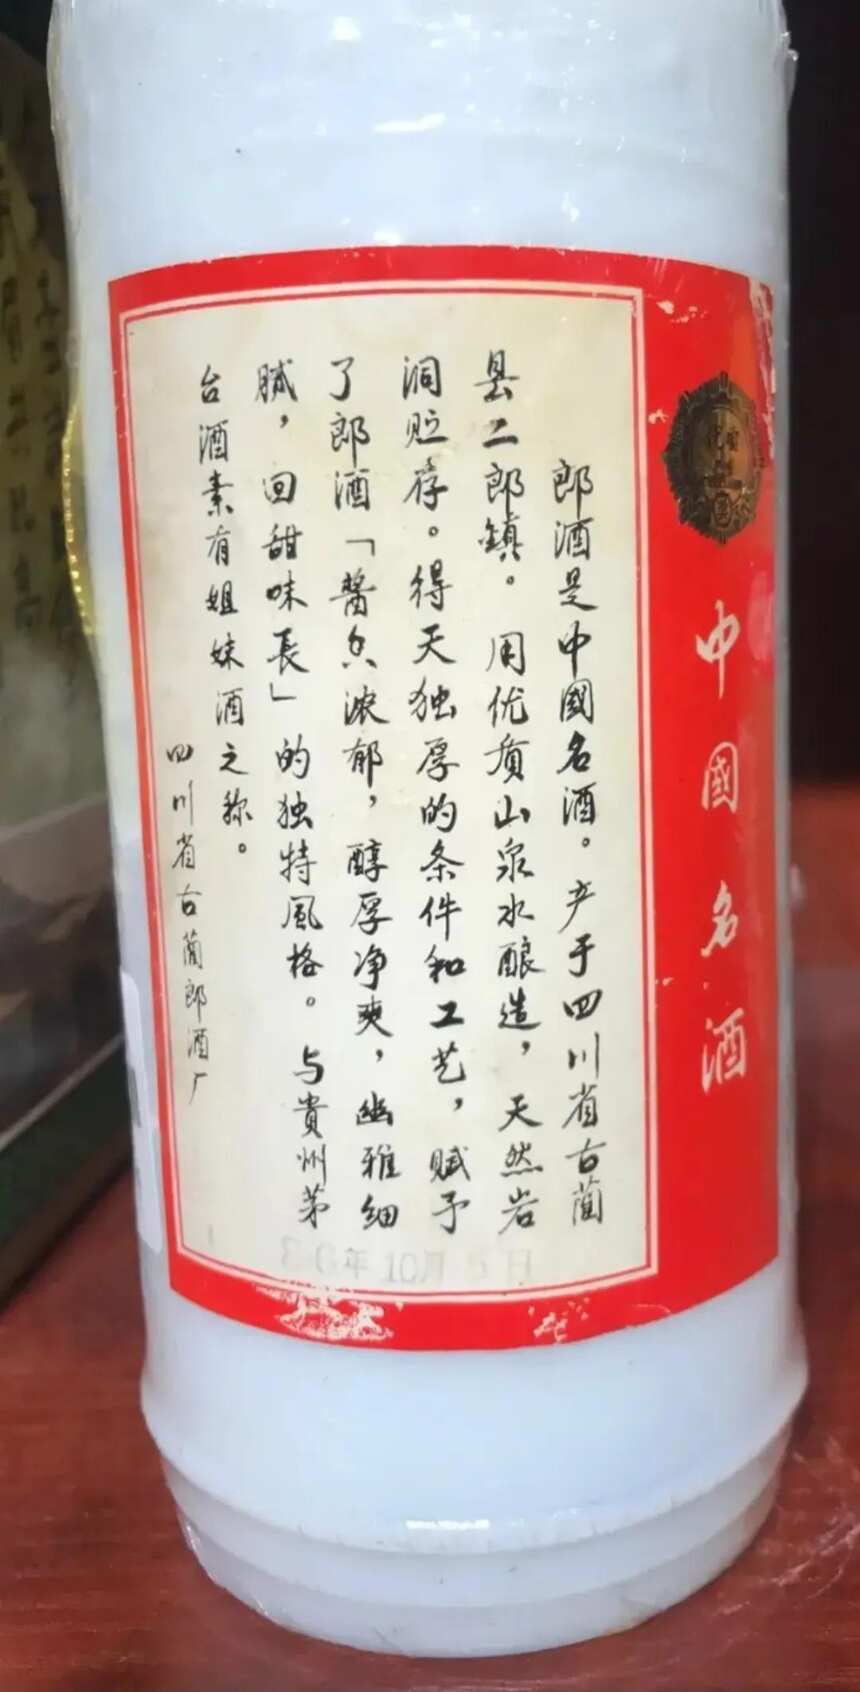 中國名酒
郎酒是中國名酒。产于四川省古蔺
县二郎鎮。用优质山泉水酿造，天然岩
洞贮存。得天独厚的条件和工艺，赋予
了郎酒「醬香浓郁，醇厚净爽，幽雅细
腻，回甜味長」的独特風格。与貴州茅
台酒素有姐妹酒之称。
四川省古蔺郎酒厂
86年10月5日